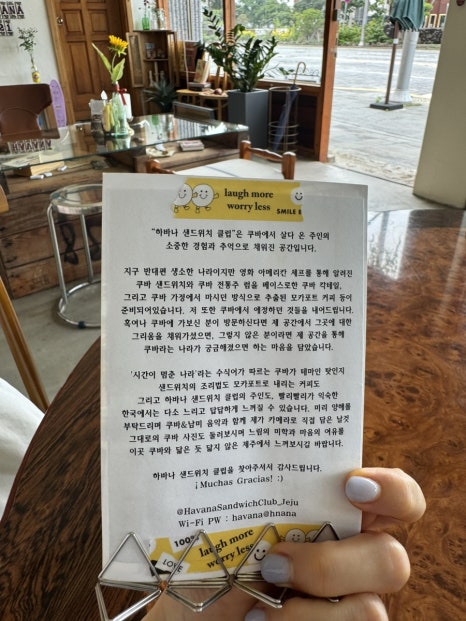 laugh more
worry less
SMILE
"하바나 샌드위치 클럽"은 쿠바에서 살다 온 주인의
소중한 경험과 추억으로 채워진 공간입니다.
지구 반대편 생소한 나라이지만 영화 아메리칸 셰프를 통해 알려진
쿠바 샌드위치와 쿠바 전통주 럼을 베이스로한 쿠바 칵테일,
그리고 쿠바 가정에서 마시던 방식으로 추출된 모카포트 커피 등이
준비되어있습니다. 저 또한 쿠바에서 애정하던 것들을 내어드립니다.
혹여나 쿠바에 가보신 분이 방문하신다면 제 공간에서 그곳에 대한
그리움을 채워가셨으면, 그렇지 않은 분이라면 제 공간을 통해
쿠바라는 나라가 궁금해졌으면 하는 마음을 담았습니다.
'시간이 멈춘 나라'라는 수식어가 따르는 쿠바가 테마인 탓인지
샌드위치의 조리법도 모카포트로 내리는 커피도
그리고 하바나 샌드위치 클럽의 주인도, 빨리빨리가 익숙한
한국에서는 다소 느리고 답답하게 느껴질 수 있습니다. 미리 양해를
부탁드리며 쿠바&남미 음악과 함께 제가 카메라로 직접 담은 날것
그대로의 쿠바 사진도 둘러보시며 느림의 미학과 마음의 여유를
이곳 쿠바와 닮은 듯 닮지 않은 제주에서 느껴보시길 바랍니다.
하바나 샌드위치 클럽을 찾아주셔서 감사드립니다.
¡Muchas Gracias! :)
@HavanaSandwichClub_Jeju
Wi-Fi PW : havana@hnana
100%
laugh more
worry less
LOVE